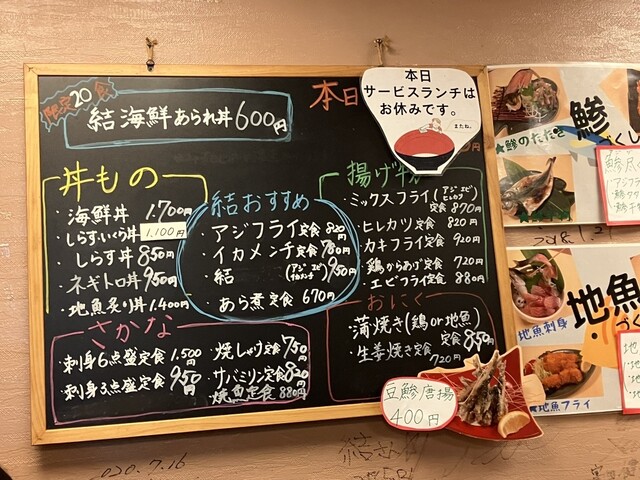 限定20食
結海鮮あられ丼 600円
本日
本日
サービスランチは
お休みです。
またね。
丼もの
・海鮮丼 1.700円
・しらすいくら丼 1.100円
・しらす丼 850円
・ネギトロ丼 950円
・地魚炙り丼 1.400円
結おすすめ
・アジフライ定食 820円
・イカメンチ定食 780円
・結 950円
・あら煮定食 670円
揚げ物
・ミックスフライ(アジ エビ ヒレカツ)定食 870円
・ヒレカツ定食 820円
・カキフライ定食 920円
・鶏からあげ定食 720円
・エビフライ定食 880円
さかな
・刺身6点盛定食 1.500円
・刺身3点盛定食 950円
・焼しゃけ定食 750円
・サバミリン定食 820円
・焼魚定食 880円
おにく
・蒲焼き(鶏or地魚)定食 850円
・生姜焼き定食 720円
豆鯵唐揚
400円
鯵
★鯵のたたき
地魚
地魚刺身
★地魚フライ
2020.7.16